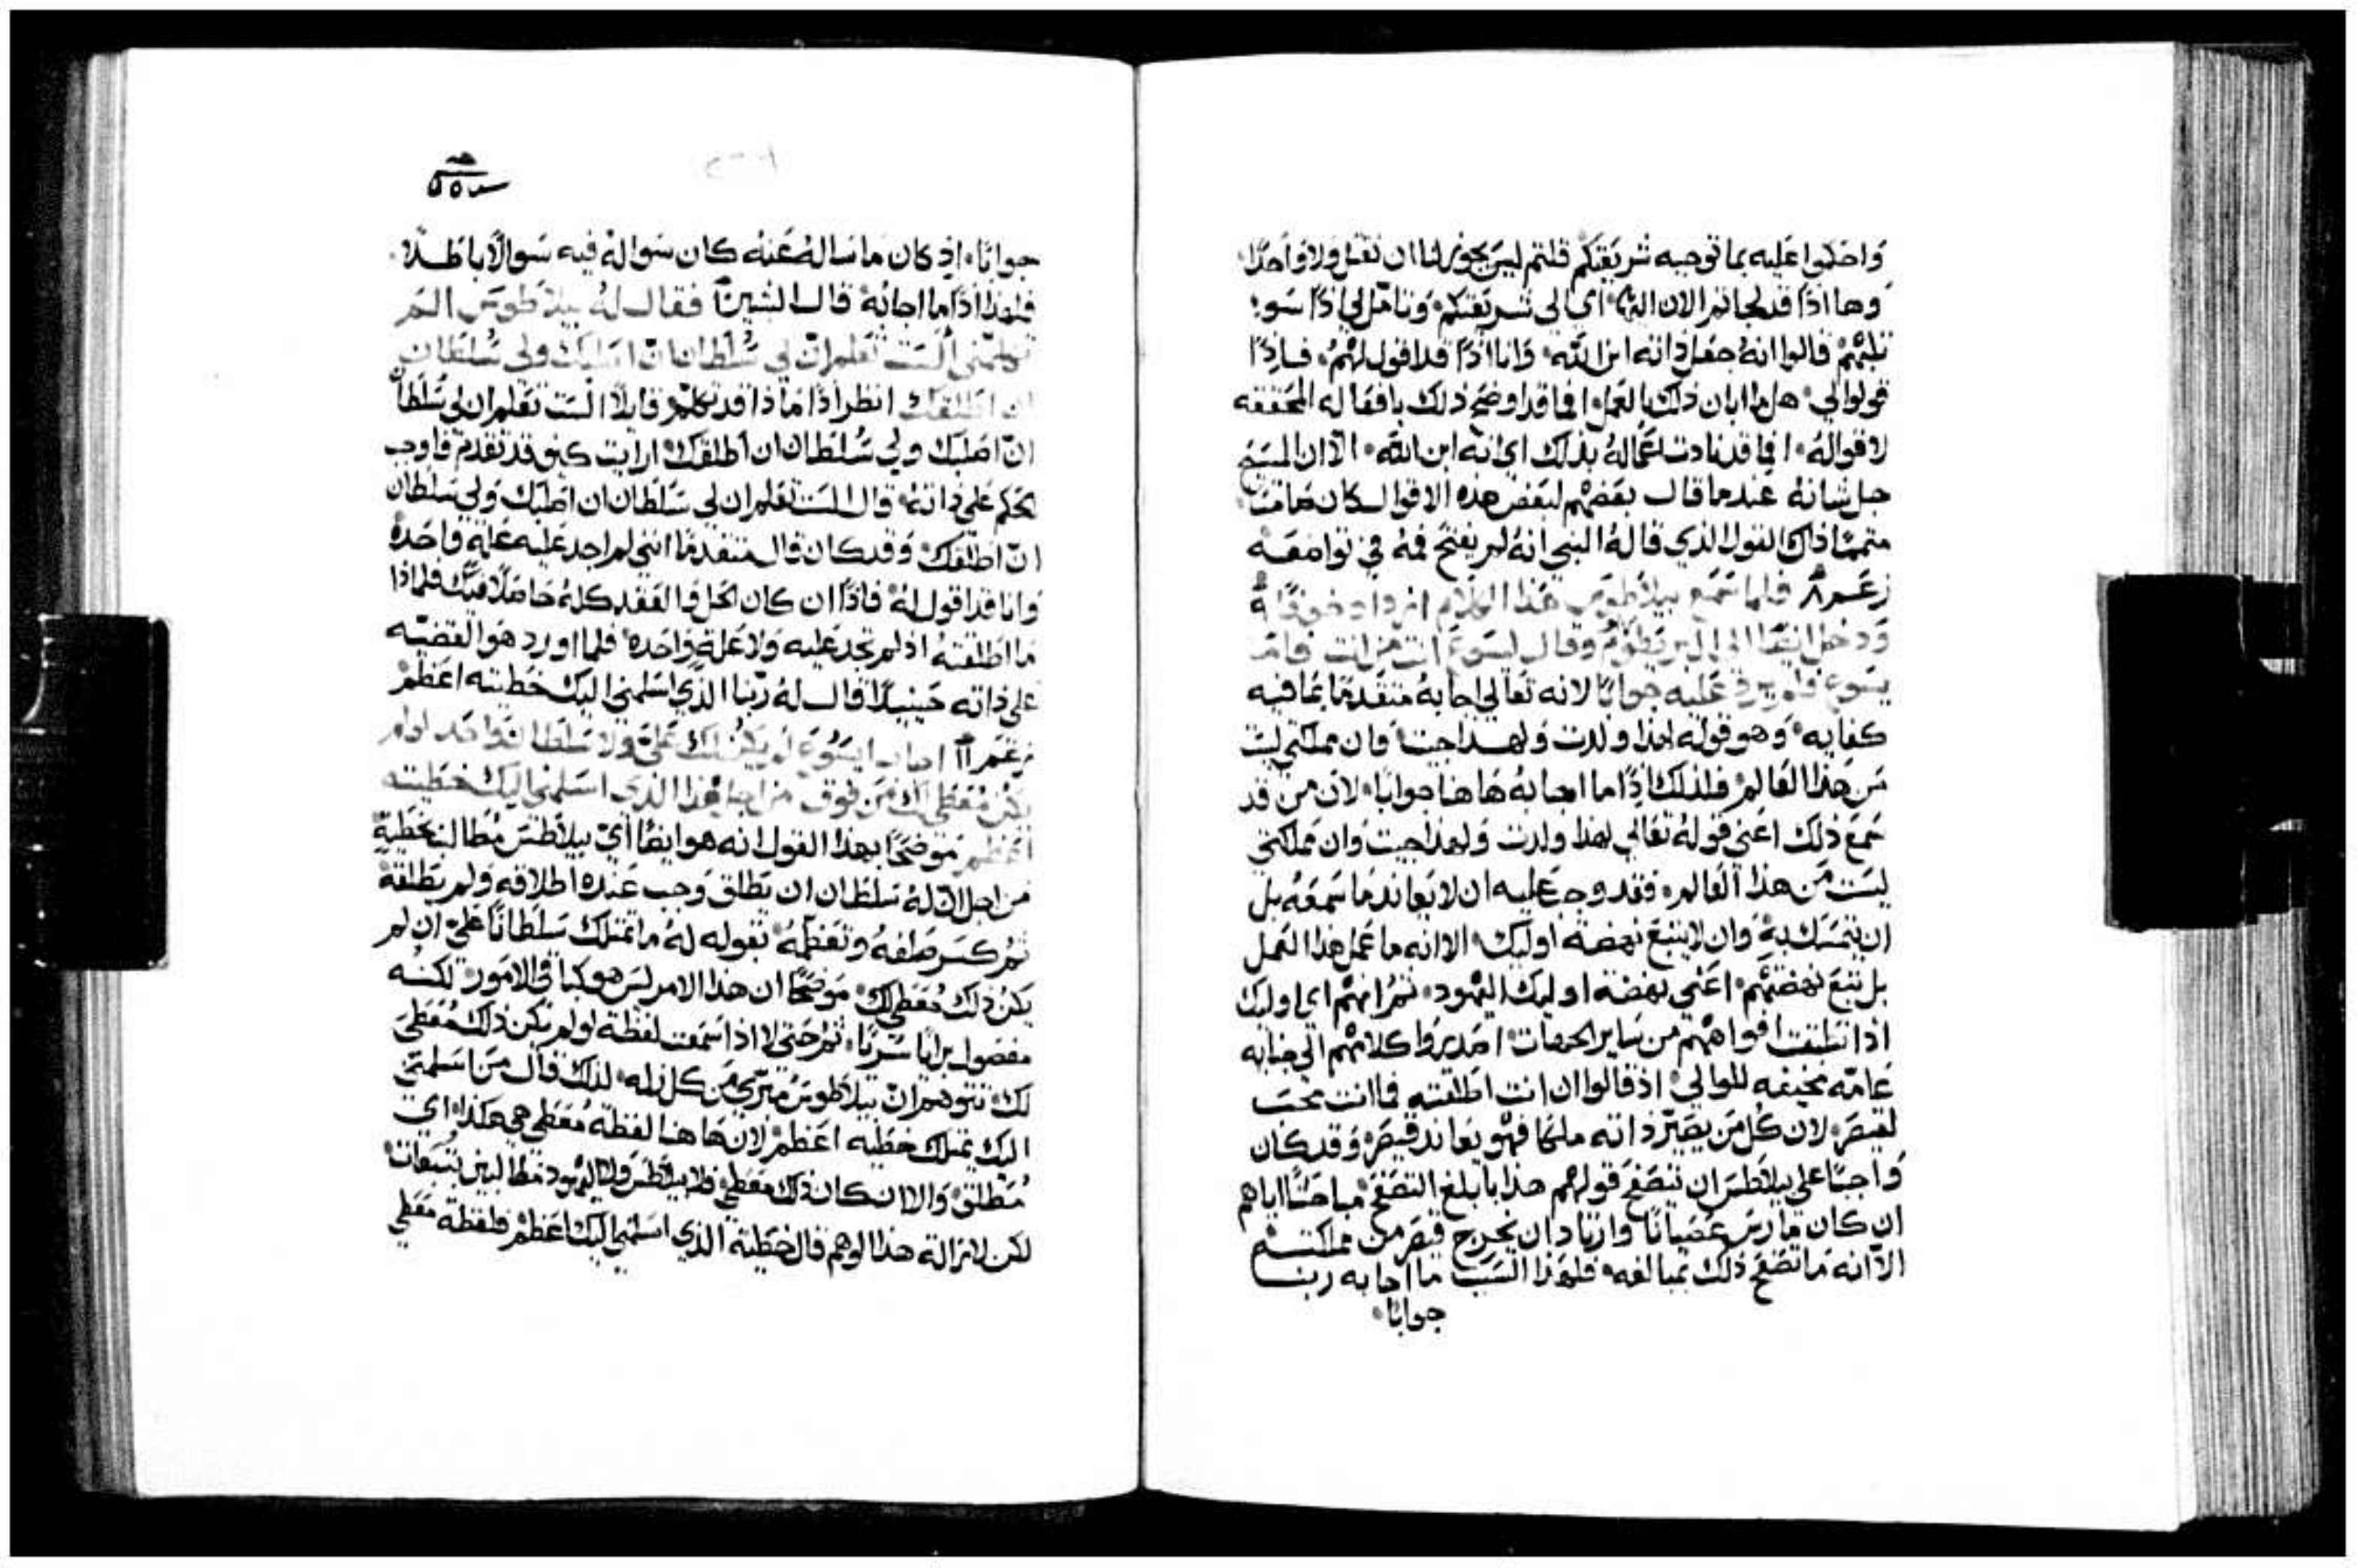 واحكموا عليه بما توجبه شريعتكم قلتم ليس يجوز لنا ان نقتل ولا واحدًا
وها اذًا قد لجاتم الان اليها اي الى شريعتكم وتامل لي ذا سو
ثلبهم قالوا انه جعل ذاته ابن الله وانا اذًا قد اقول لهم فاذًا
قولوا لي هل ما ابان ذلك بالعمل انما قد اوضح ذلك بافعاله المحققه
لاقواله انما قد نادت اعماله بذلك اي انه ابن الله الا ان المسيح
جل شانه عندما قال بعضهم لبعض هذه الاقوال كان صامتًا
متممًا ذاك القول الذي قاله النبي انه لم يفتح فمه في تواضعه
فلما سمع بيلاطوس هذا الكلام ازداد خوفًا
ودخل ايضًا الى الابريطوريون وقال ليسوع انت من انت فاما
يسوع فلم يرد عليه جوابًا لانه تعالى اجابه متقدمًا بما فيه
كفايه وهو قوله لهذا ولدت ولهذا جيت وان مملكتي ليست
من هذا العالم فلذلك اذًا ما اجابه هاهنا جوابًا لان من قد
سمع ذلك اعني قوله تعالى لهذا ولدت ولهذا جيت وان مملكتي
ليست من هذا العالم فقد وجب عليه ان لا يعاند ما سمعه بل
ان يتمسك به وان لا يتبع نهضة اوليك الا انه ما عمل هذا العمل
بل تبع نهضتهم اعني نهضة اوليك اليهود ثم انهم اي اوليك
اذا انطبقت افواههم من ساير الجهات اصدروا كلامهم الى جنايه
عامه مخيفه للوالي اذ قالوا ان انت اطلقته فما انت محب
لقيصر لان كل من يصير ذاته ملكًا فهو يعاند قيصر وقد كان
واجبًا على بيلاطس ان يتصفح قولهم هذا بابلغ التصفح مباحثًا اياهم
ان كان مارس عصيانًا وارتاد ان يخرج قيصر من مملكته
الا انه ما تصفح ذلك بمبالغه فلهذا السبب ما اجابه ربنا
جوابًا
جوابًا اذ كان ما ساله عنه كان سواله فيه سوالًا باطلًا
فلهذا اذًا ما اجابه قال البشير فقال له بيلاطوس الم
تكلمني الست تعلم ان لي سلطان ان اصلبك ولي سلطان
ان اطلقك انظر اذًا ماذا قد تكلم قايلًا الست تعلم ان لي سلطان
ان اصلبك ولي سلطان ان اطلقك ارايت كيف قد تقدم فاوجب
الحكم على ذاته قال الست تعلم ان لي سلطان ان اصلبك ولي سلطان
ان اطلقك وقد كان قال متقدمًا انني لم اجد عليه علة واحده
وانا قد اقول له فاذًا ان كان الحل والعقد كله حاصلًا فيك فلماذا
ما اطلقته اذ لم تجد عليه ولا علة واحده فلما اورد هو القضيه
على ذاته حينيذًا قال له ربنا الذي اسلمني اليك خطيته اعظم
اجاب ايسوع لم يكن لك علي ولا سلطانًا واحدًا لو لم
يكن معطى لك من فوق من اجل هذا الذي اسلمني اليك خطيته
اعظم موضحًا بهذا القول انه هو ايضًا اي بيلاطس مطالب بخطية
من اجل ان له سلطان ان يطلق وجب عنده اطلاقه ولم يطلقه
ثم كسر صلفه وتعظمه بقوله له ما تمتلك سلطانًا علي ان لم
يكن ذلك معطى لك موضحًا ان هذا الامر ليس هو كباقي الامور لكنه
مفصول برايًا سريًا ثم حتى لا اذا سمعت لفظة لو لم يكن ذلك معطى
لك تتوهم ان بيلاطوس متبري من كل زله لذلك قال من اسلمني
اليك يمتلك خطيه اعظم لان هاهنا لفظة معطى هي هكذا اي
مطلق والا ان كان ذلك معطى فلا بيلاطس ولا اليهود مطالبين بتبعات
لكن لازالة هذا الوهم قال خطية الذي اسلمني اليك اعظم فلفظة معطى